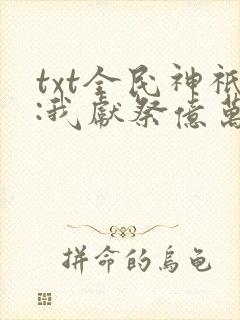 txt全民神祇
:我獻祭億萬
拼命的烏龜